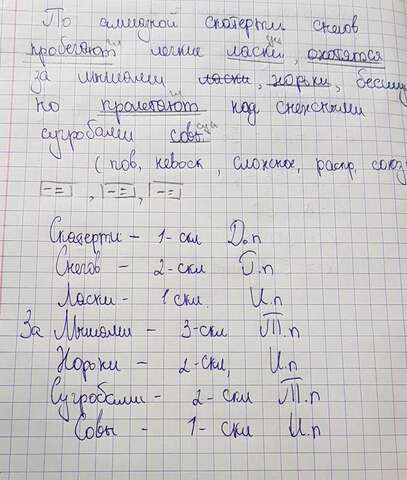 По алмазной скатерти снегов
пробегают легкие ласки, охотятся
за мышами ласки, норки, бесшу
но пролетают над снежными
сугробами совы.
( пов, невоск, сложное, распр, союз
[-=], [-=], [-=]
Скатерти - 1-скл Д.п
Снегов - 2-скл Р.п
Ласки - 1 скл. И.п
За Мышами - 3-скл П.п
Норки - 2-скл, И.п
Сугробами - 2-скл П.п
Совы - 1-скл И.п